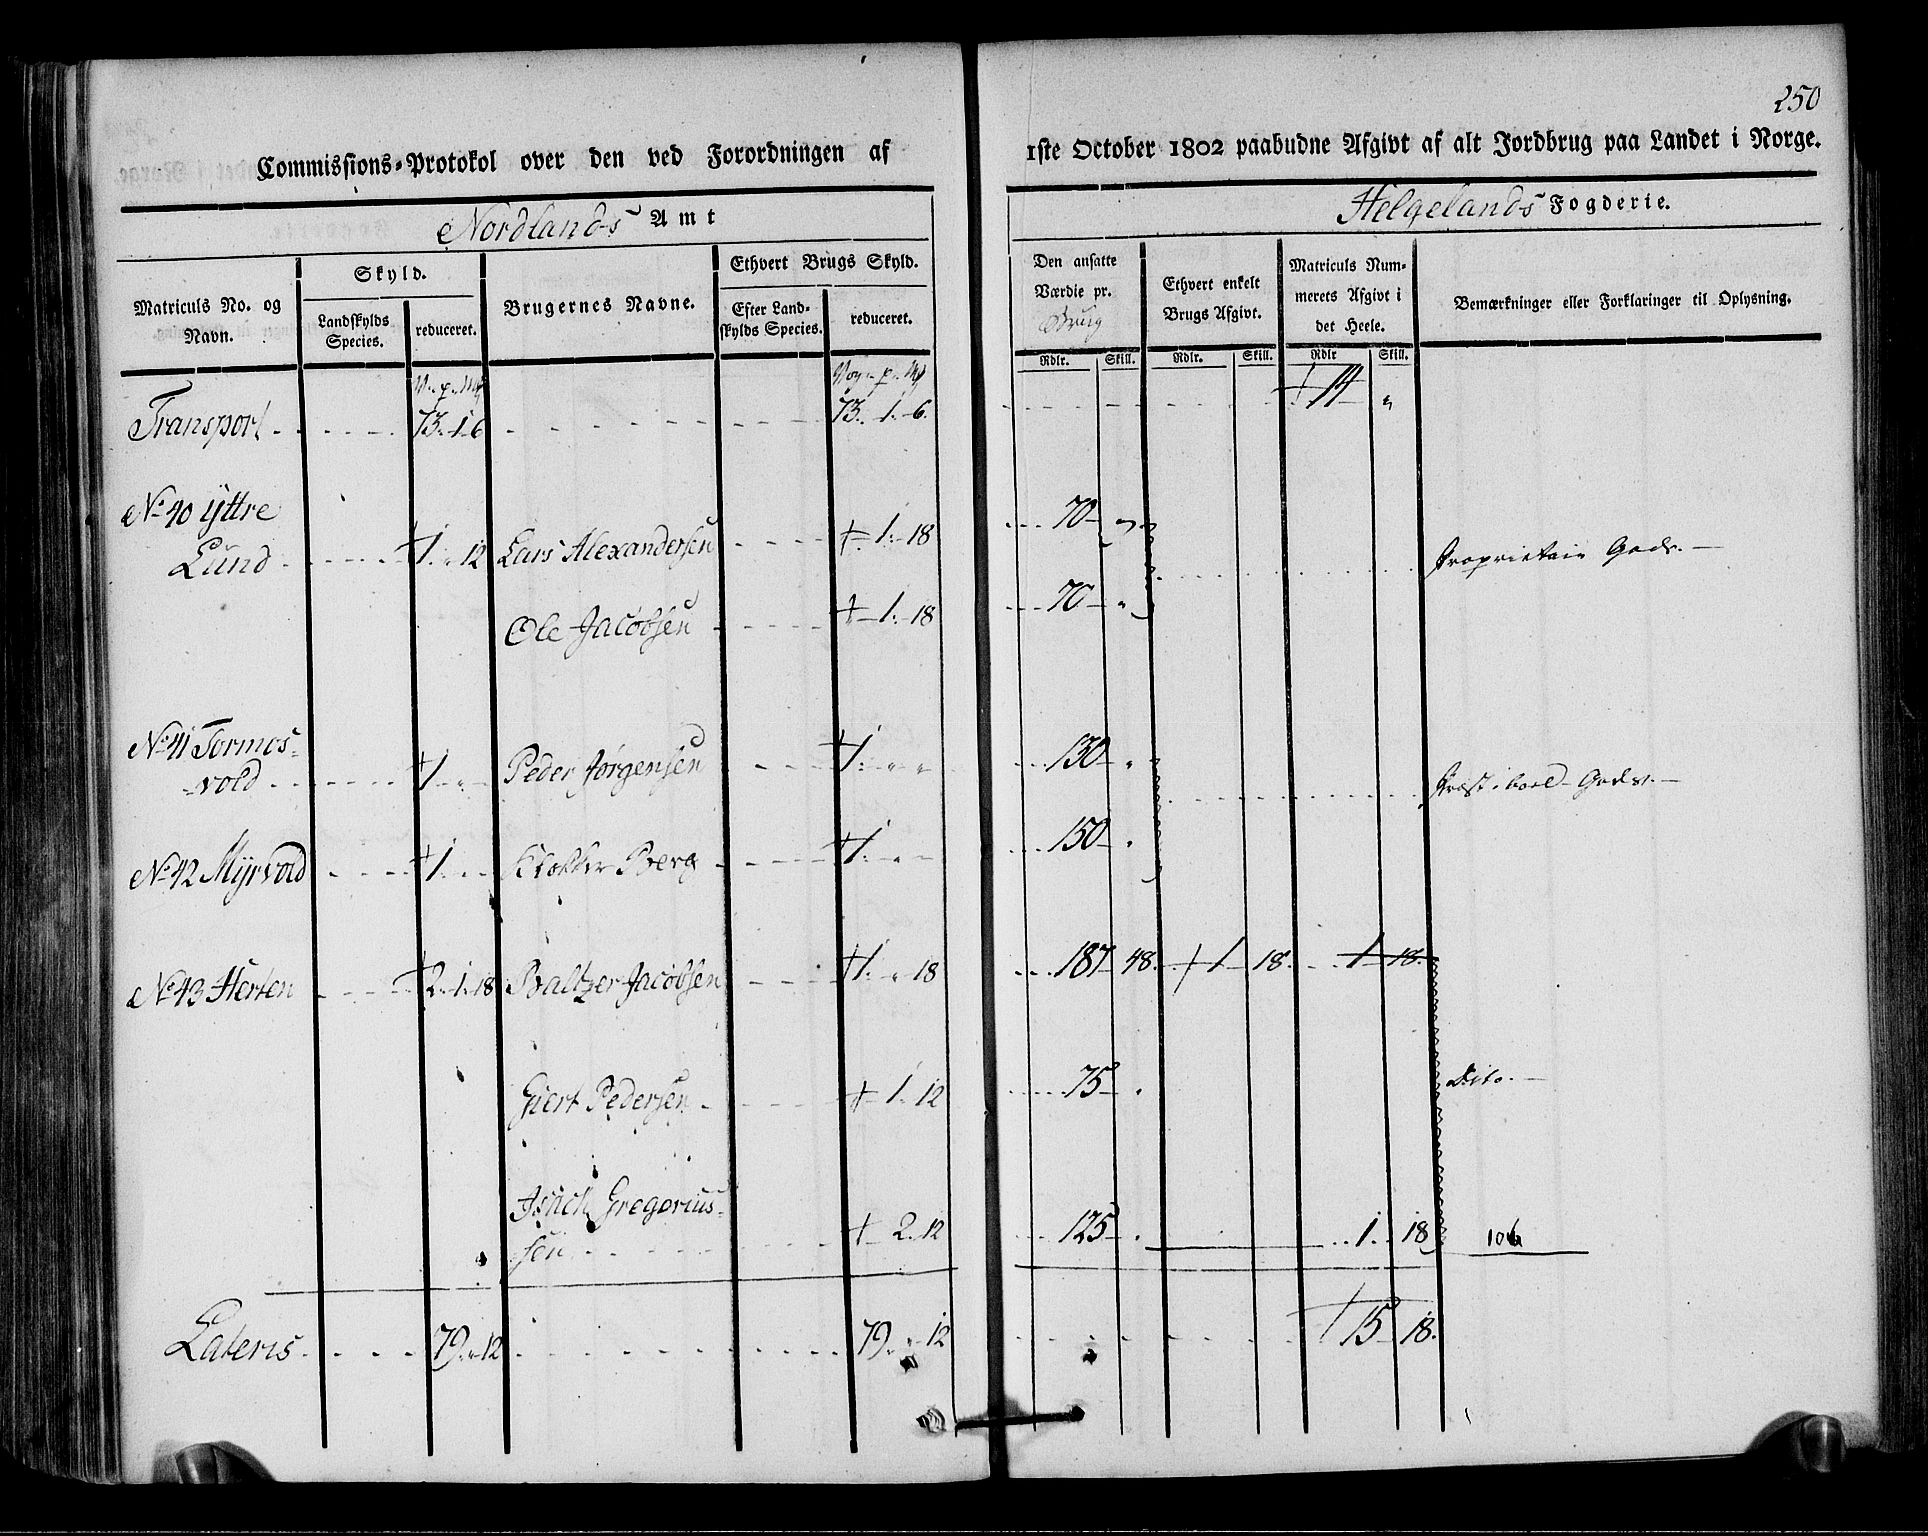 250
Commissions-Protokol over den ved Forordningen af 1ste October 1802 paabudne Afgivt af alt Jordbrug paa Landet i Norge.
Nordlands Amt
Helgelands Fogderie.
Matriculs No. og Navn.
Skyld.
Landskylds Species.
reduceret.
Brugernes Navne.
Ethvert Brugs Skyld.
Efter Landskylds Species.
reduceret.
Den ansatte Værdie pr. Brug
Ethvert enkelt Brugs Afgivt.
Matriculs Nummerets Afgivt i det Heele.
Bemærkninger eller Forklaringer til Oplysning.
Rdlr. Skill. Rdlr. Skill. Rdlr Skill.
V. p. M
Vog. p. M
Transport 73. 1. 6 73. 1. 6. 14 "
No 40 Yttre
Lund 1. " 12 Lars Alexandersen 1. 18 70 " Proprietair Gods.
Ole Jacobsen 1. 18 70 "
No 41 Tormos-
vold 1. " Peder Jørgensen 1. " " 130 " Præstebord Gods.
No 42 Myrvold 1. " Klokker Berg 1. " " 150 "
No 43 Herten 2. 1. 18 Baltzer Jacobsen 1. " 18 187 48. 1 18. 1 18.
Giert Pedersen 1. 12 75 " Dito.
Isach Gregorius-
sen 2. 12 125 " 1. 18 106
Lateris 79. " 12 79. " 12 15 18.